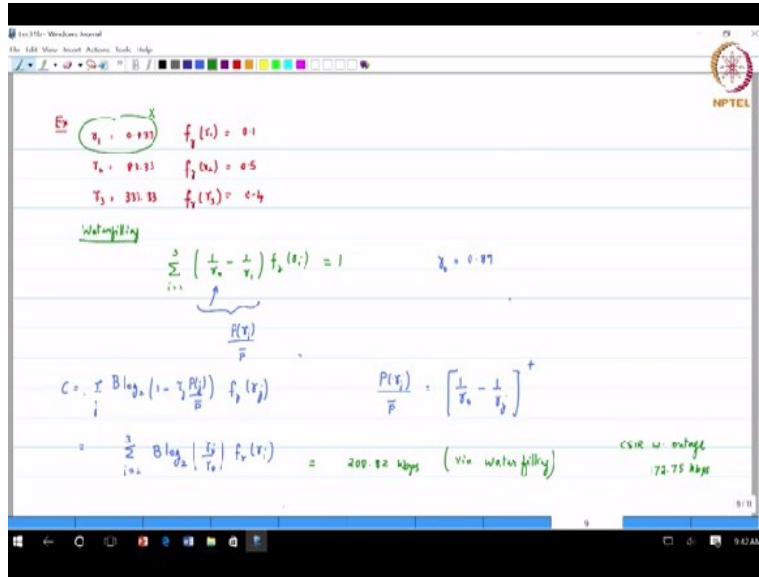 Lec31b - Windows Journal
File Edit View Insert Actions Tools Help
NPTEL
Ex γ₁ = 0.833 x f_γ(γ₁) = 0.1
γ₂ = 83.33 f_γ(γ₂) = 0.5
γ₃ = 333.33 f_γ(γ₃) = 0.4
Waterfilling
3
Σ (1/γ₀ - 1/γᵢ) f_γ(γᵢ) = 1 γ₀ = 0.89
i=2
P(γᵢ)/P̄
C = Σ_j B log₂ (1 - γ_j P(γ_j)/P̄) f_γ(γ_j) P(γ_j)/P̄ = [1/γ₀ - 1/γ_j]⁺
= Σ_{i=2}^{3} B log₂ (γ_j/γ₀) f_γ(γᵢ) = 200.82 kbps (via water filling)
CSIR w. outage
172.75 kbps
9/11
9
9:42 AM